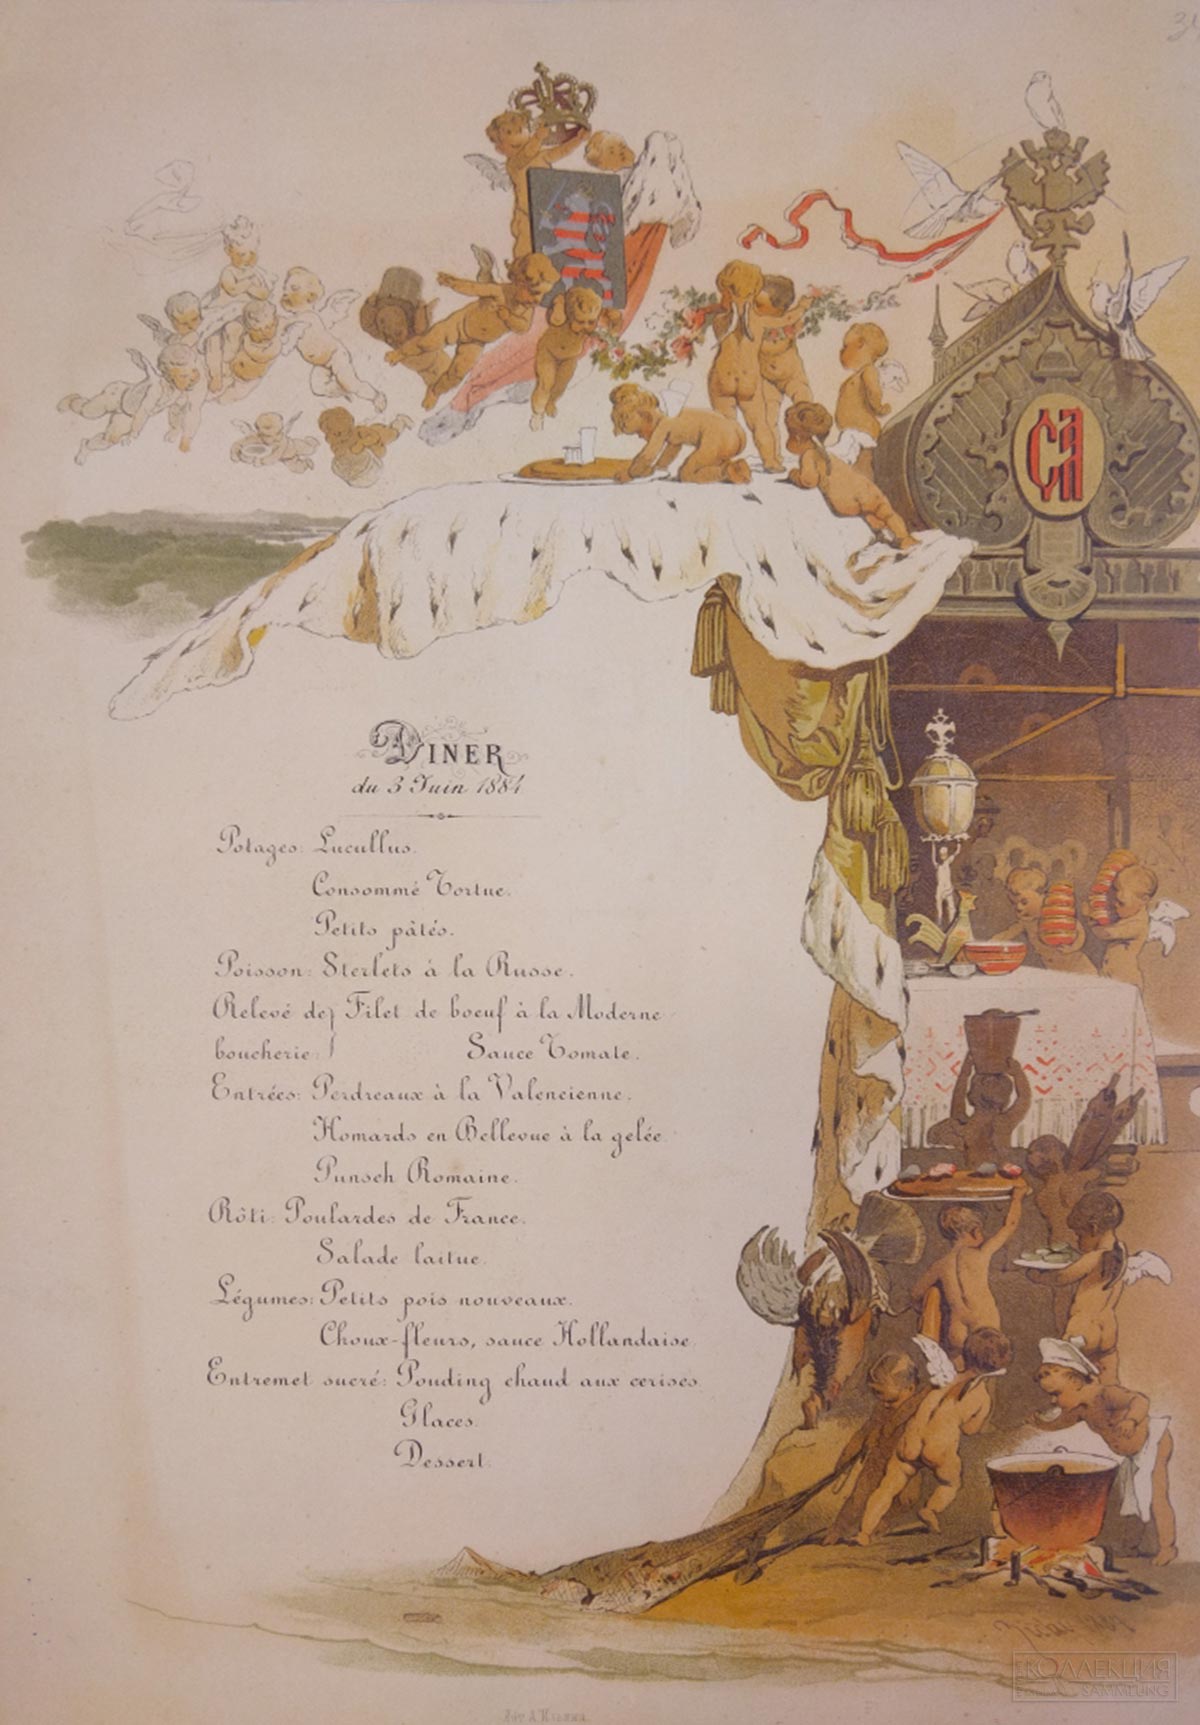 34
СА
DINER
du 3 Juin 1884
Potages: Lucullus.
Consommé Tortue.
Petits pâtés.
Poisson: Sterlets à la Russe.
Relevé de Filet de boeuf à la Moderne
boucherie: Sauce Tomate.
Entrées: Perdreaux à la Valencienne.
Homards en Bellevue à la gelée.
Punsch Romaine.
Rôti: Poulardes de France.
Salade laitue.
Légumes: Petits pois nouveaux.
Choux-fleurs, sauce Hollandaise.
Entremet sucré: Pouding chaud aux cerises.
Glaces.
Dessert.
КОЛЛЕКЦИЯ
SAMMLUNG
Лит. А. Ильина